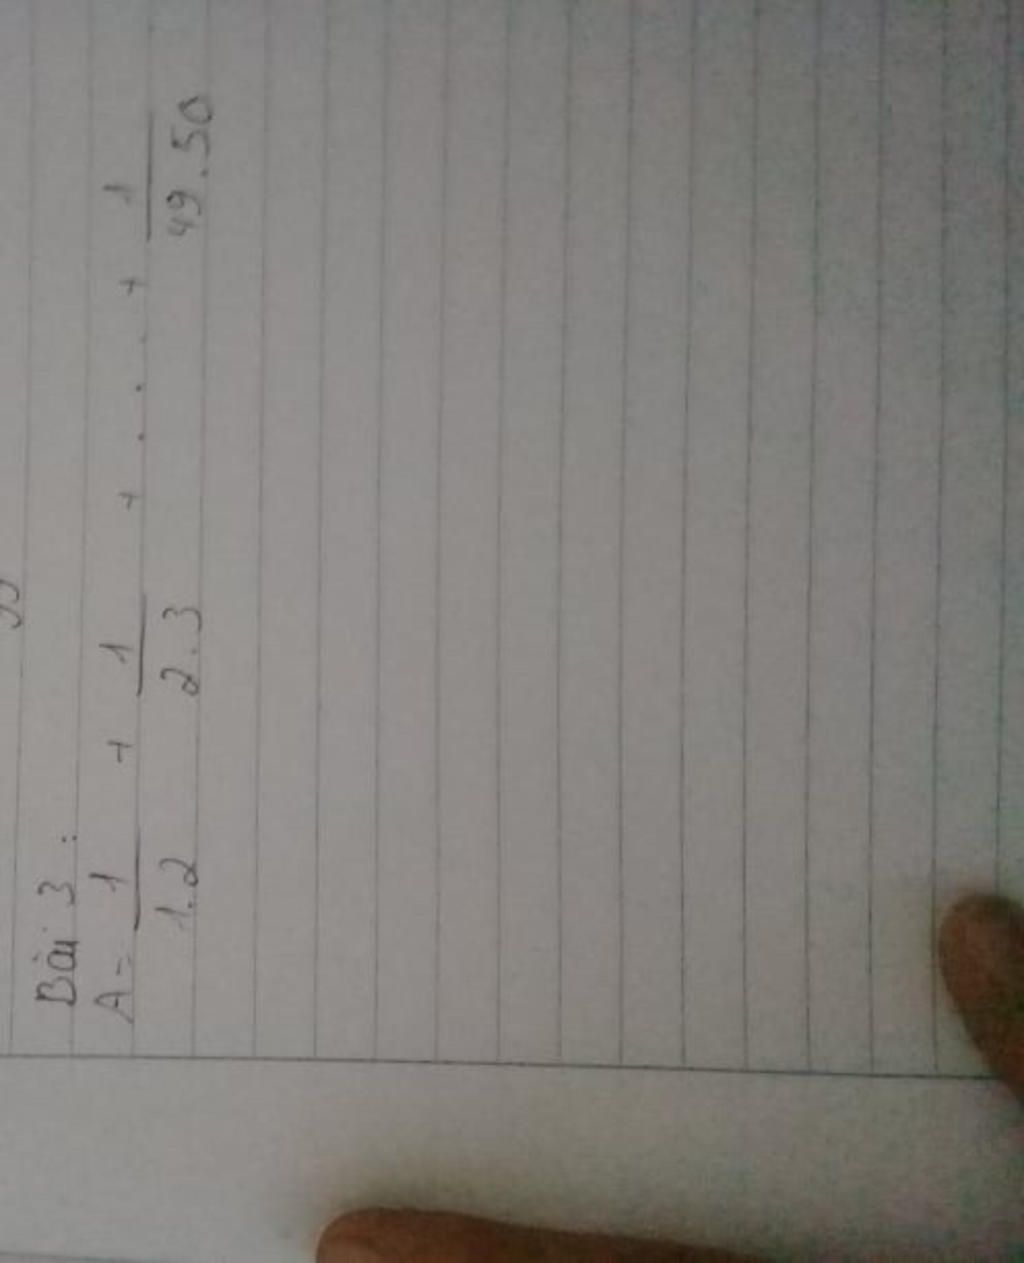 Bài 3 :
A = 1/1.2 + 1/2.3 + .... + 1/49.50